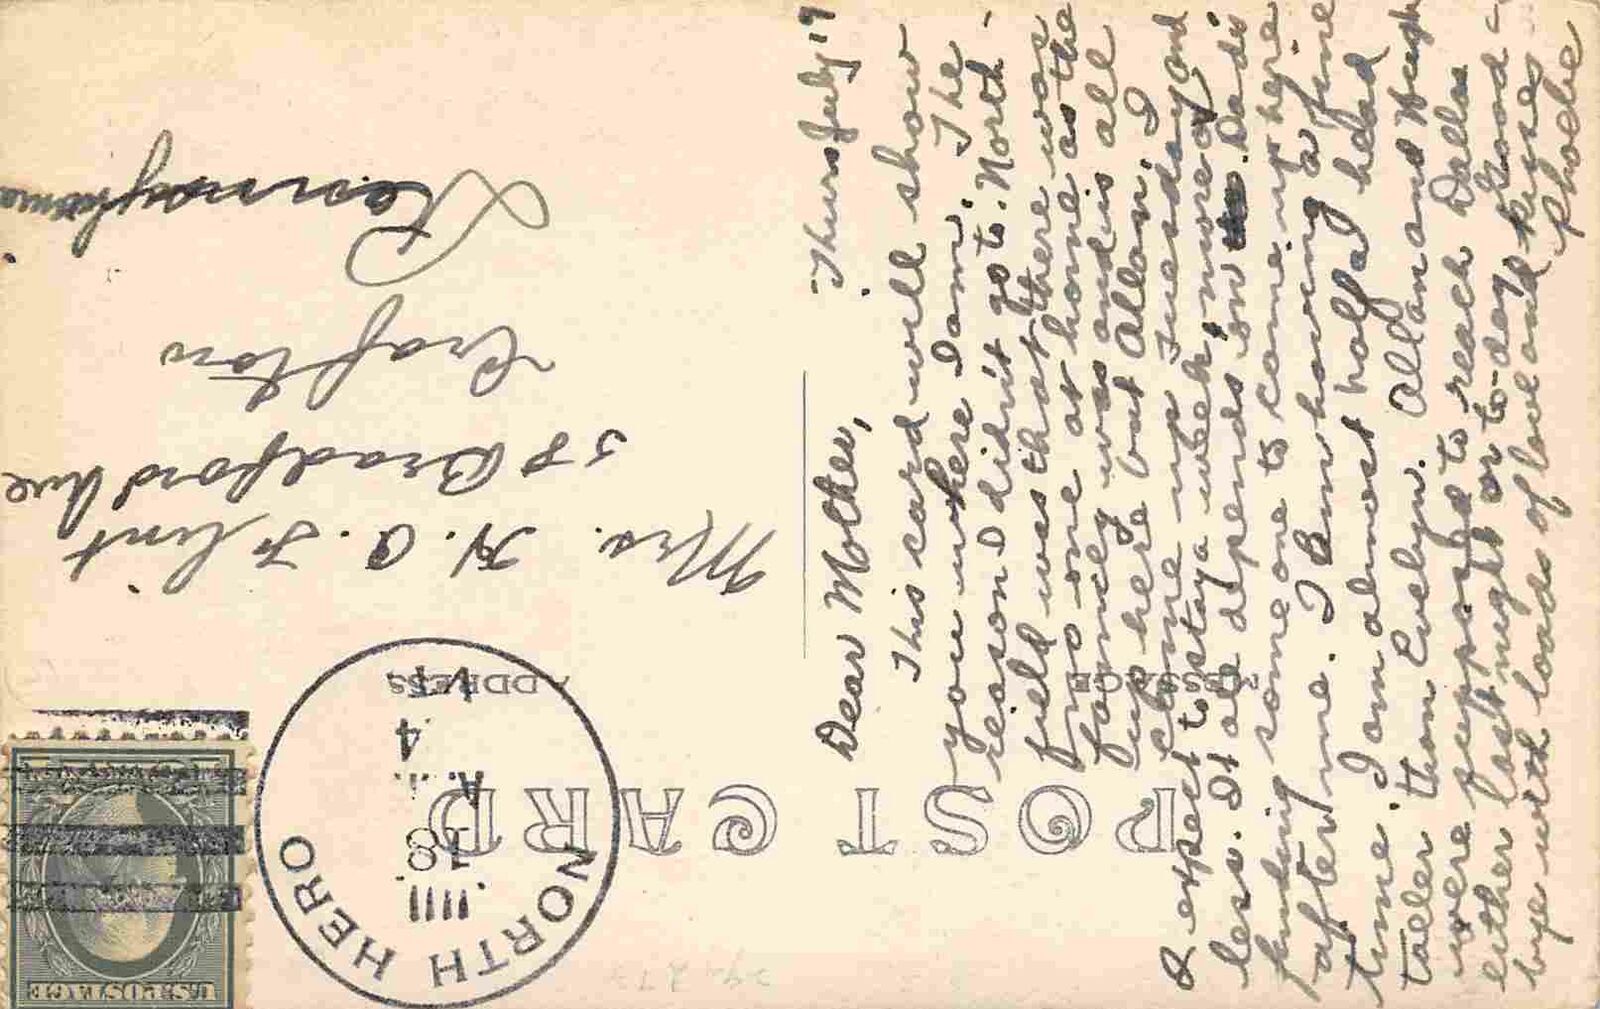 POST CARD
MESSAGE
ADDRESS
U.S. POSTAGE
NORTH HERO
18
A
4
VT
Thurs July 19
Dear Mother,
This card will show
you where I am. The
reason I didn't go to North-
field was that there was
no one at home as the
family was and is all
up here but Allan. I
came up Tuesday and
expect to stay a week, more or
less. It all depends on Dad's
finding some one to come up here
after me. I am having a fine
time. I am almost half a head
taller than Evelyn. Allan and Hugh
were supposed to reach Dallas
either last night or to-day. Good-
bye with loads of love and kisses
Phoebe
Mrs. H. A. Flint
58 Bradford Ave
Crafton
Pennsylvania